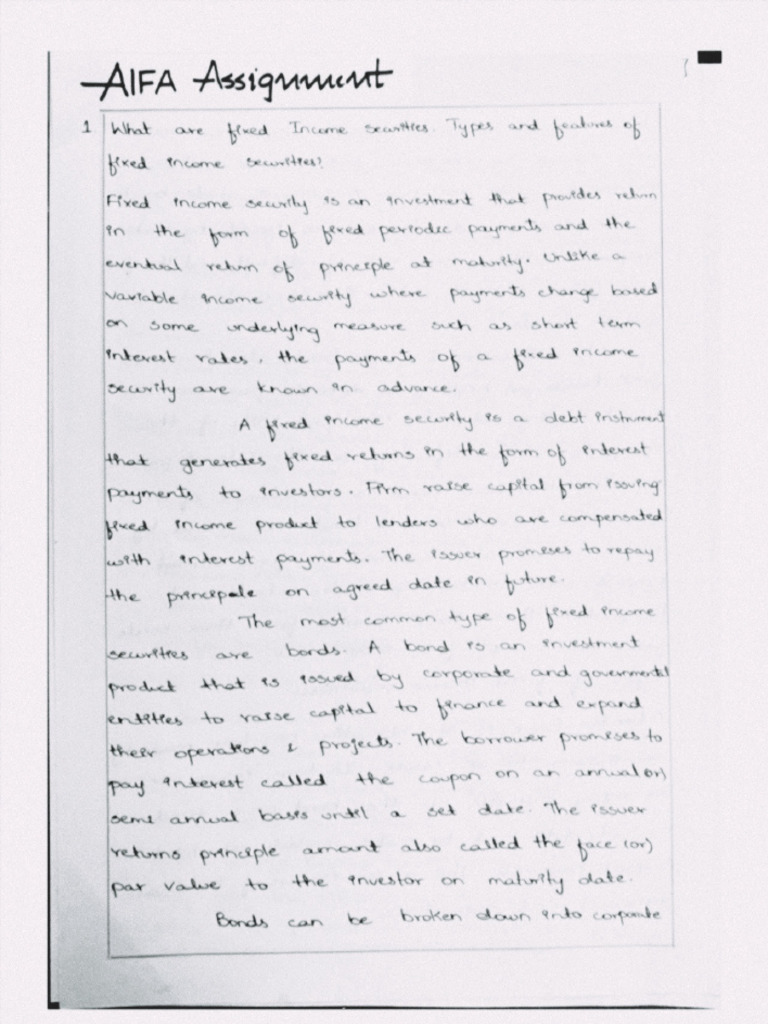 AIFA Assignment
1 What are fixed Income securities. Types and features of
fixed income securities?
Fixed income security is an investment that provides return
in the form of fixed periodic payments and the
eventual return of principle at maturity. Unlike a
variable income security where payments change based
on some underlying measure such as short term
interest rates, the payments of a fixed income
security are known in advance.
A fixed income security is a debt instrument
that generates fixed returns in the form of interest
payments to investors. Firm raise capital from issuing
fixed income product to lenders who are compensated
with interest payments. The issuer promises to repay
the principale on agreed date in future.
The most common type of fixed income
securities are bonds. A bond is an investment
product that is issued by corporate and governmental
entities to raise capital to finance and expand
their operations & projects. The borrower promises to
pay interest called the coupon on an annual (or)
semi annual basis until a set date. The issuer
returns principle amount also called the face (or)
par value to the investor on maturity date.
Bonds can be broken down into corporate